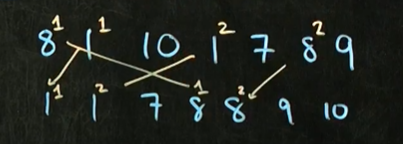 8¹ 1¹ 10 1² 7 8² 9
1¹ 1² 7 8¹ 8² 9 10